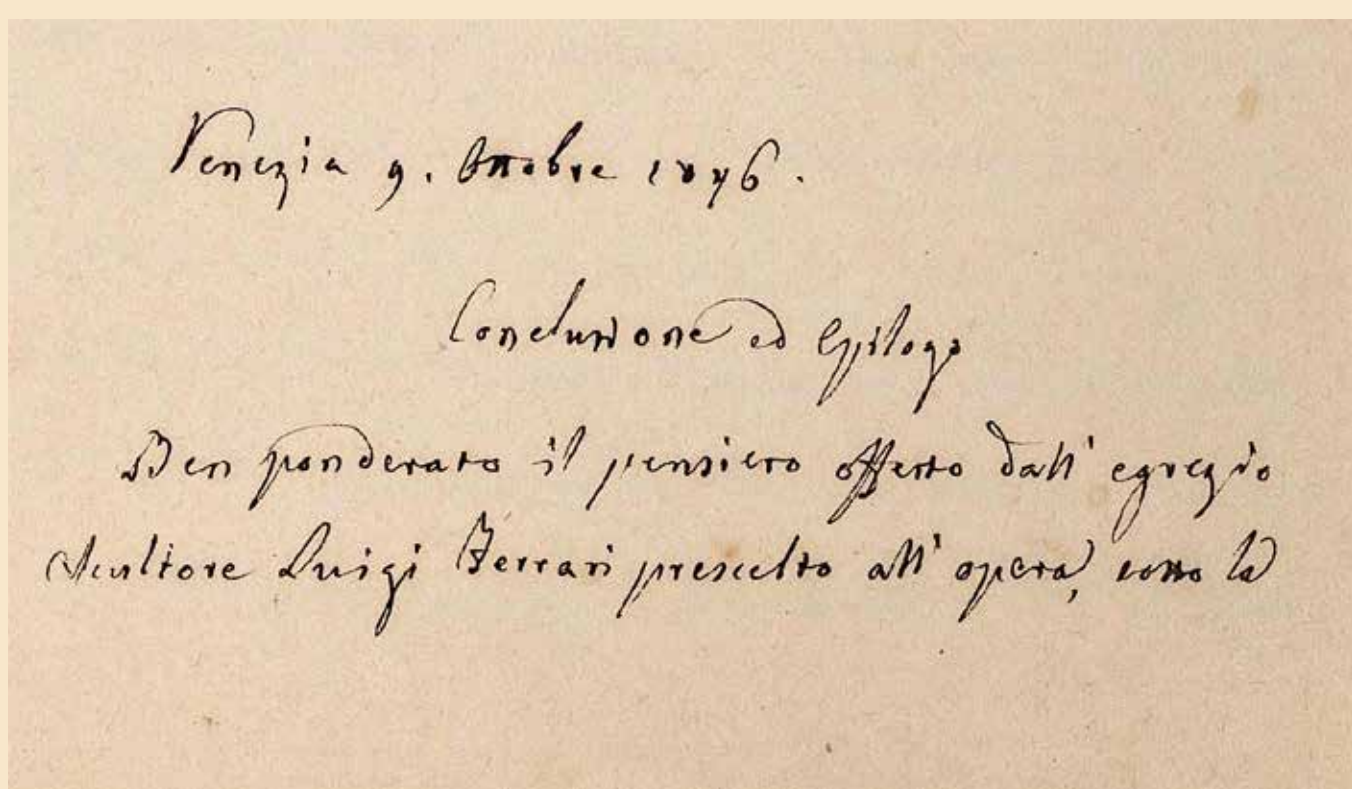 Venezia 9. Ottobre 1876.
Conclusione ed Epilogo
Ben ponderato il pensiero offerto dall' egregio
Scultore Luigi Ferrari prescelto all' opera, sotto la